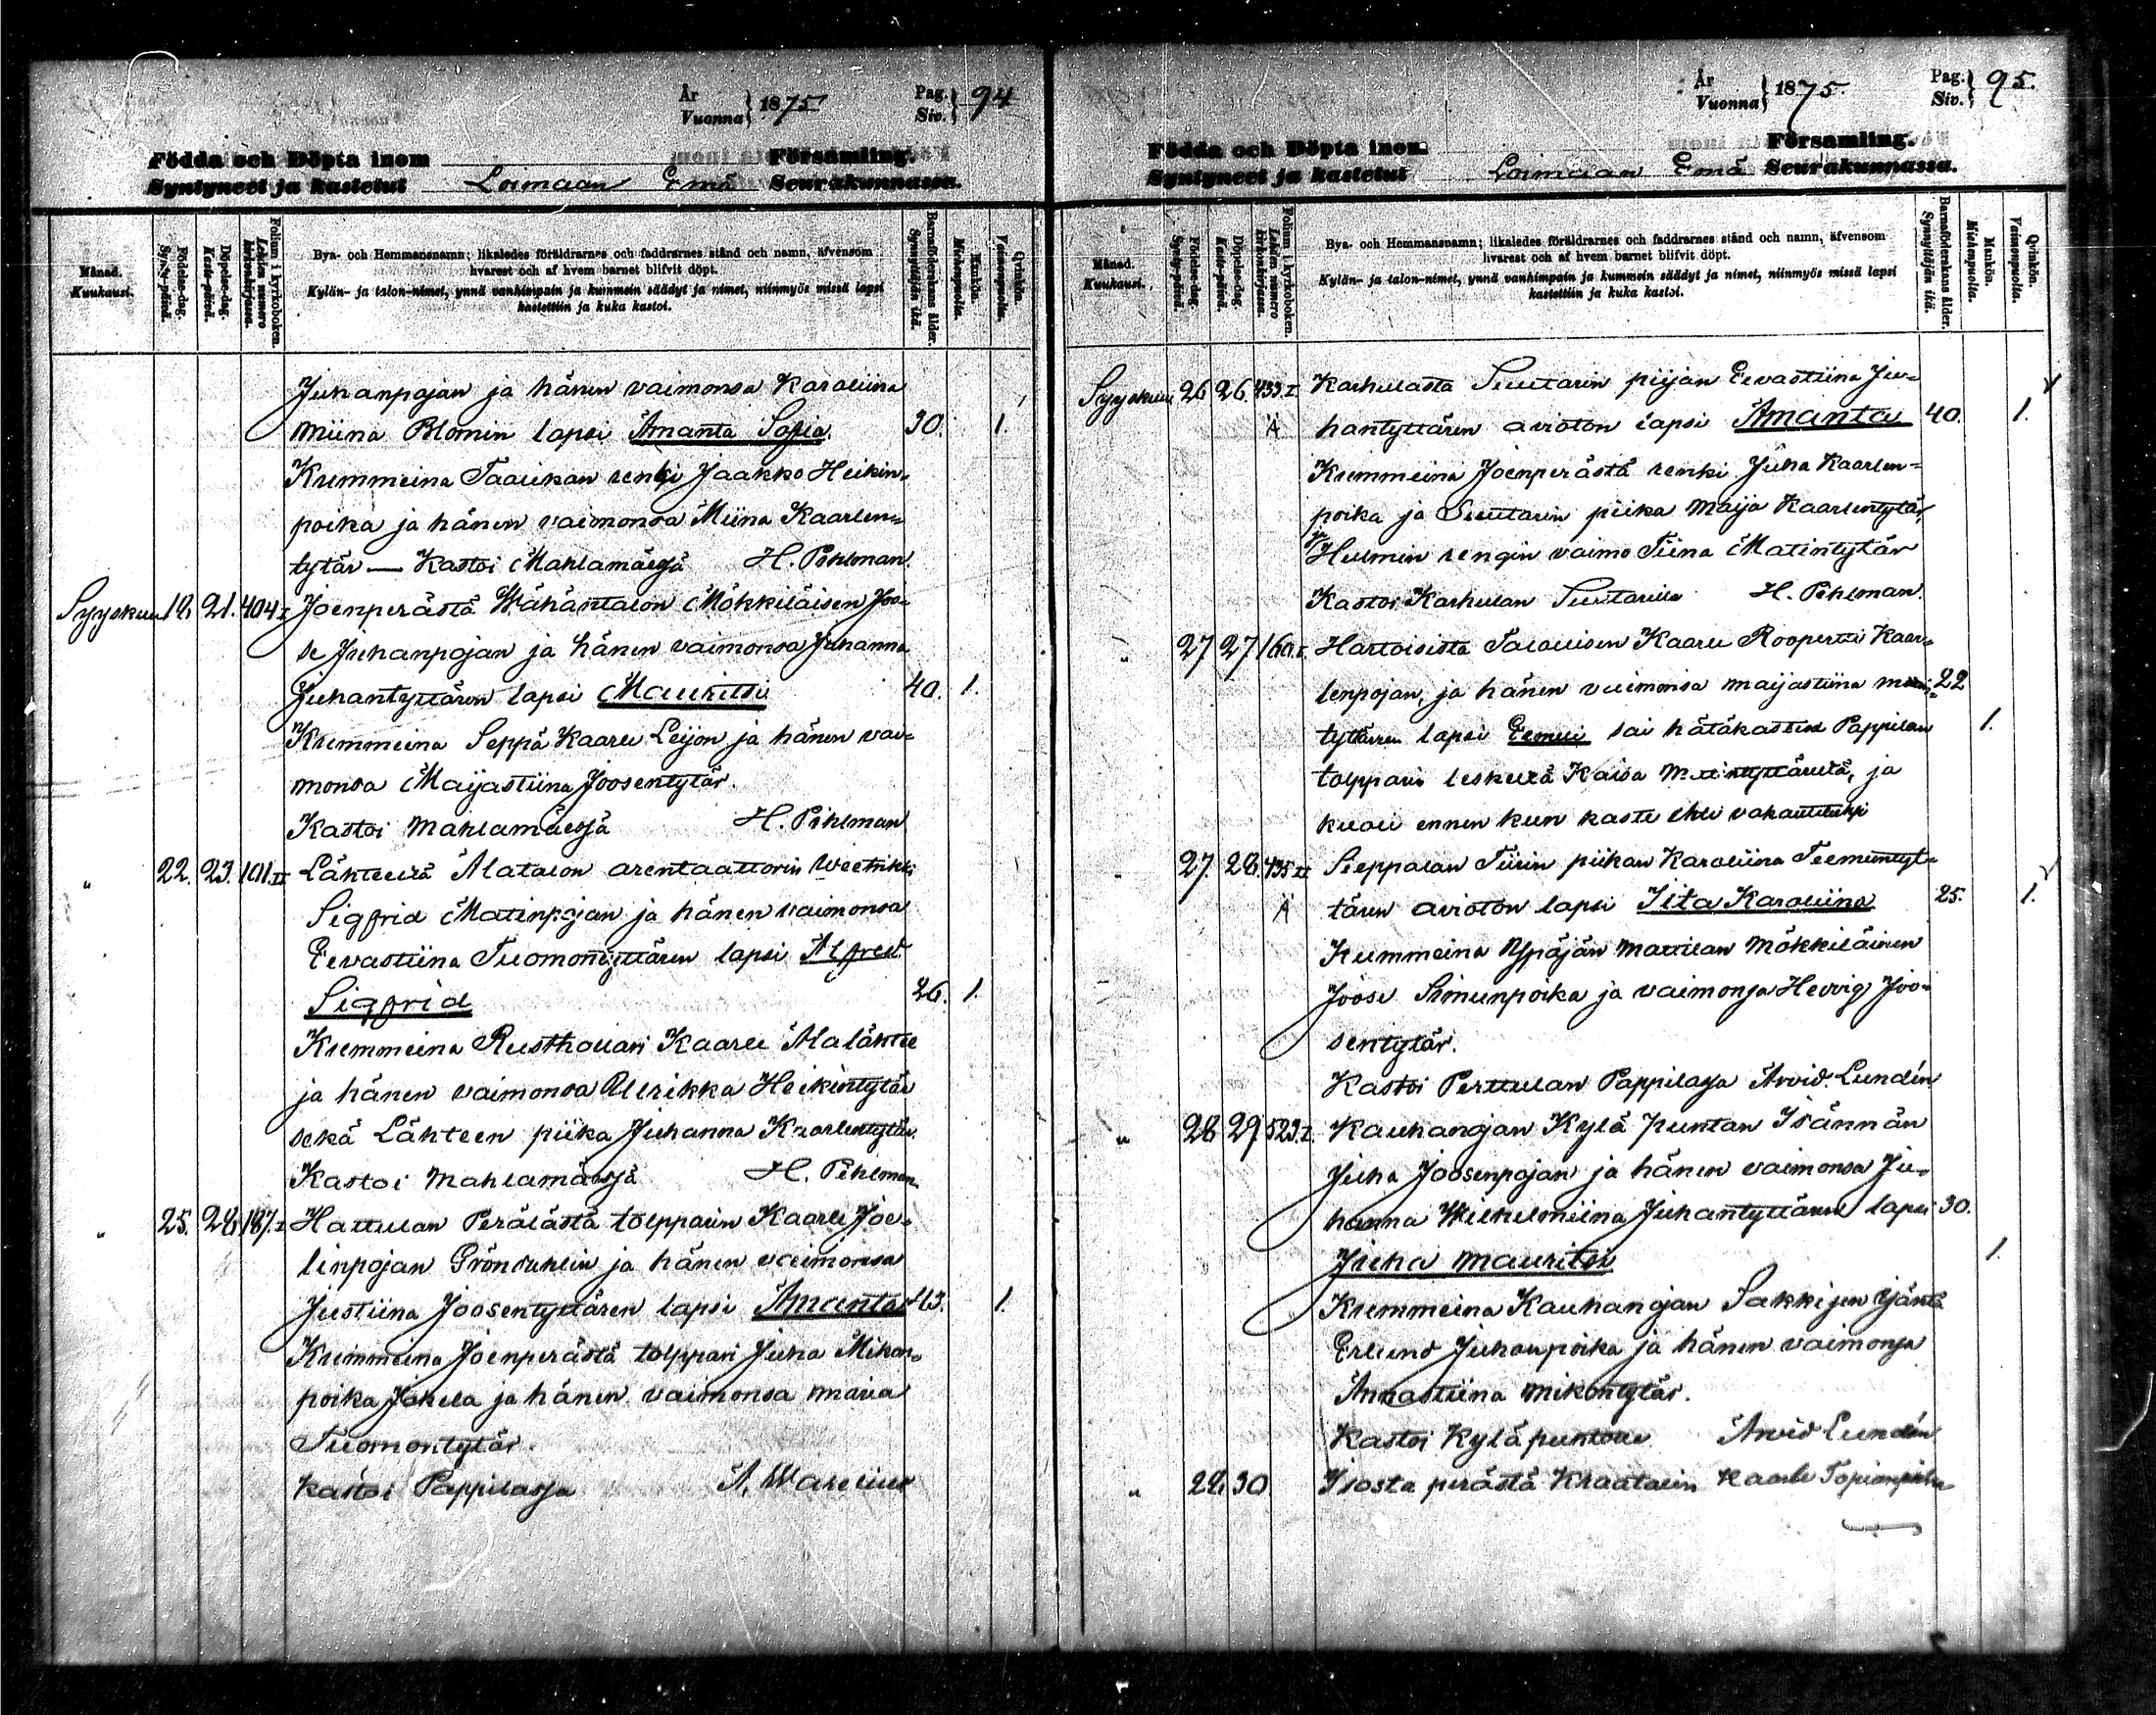 År
Vuonna } 1875
Pag.
Siv. } 94
Födda och Döpta inom Församling.
Syntyneet ja kastetut Loimaan Emä Seurakunnassa.
Månad.
Kuukausi.
Födelse-dag.
Synty-päivä.
Döpelse-dag.
Kaste-päivä.
Folium i kyrkoboken.
Lehden numero kirkonkirjassa.
Bya- och Hemmansnamn; likaledes föräldrarnes och faddrarnes stånd och namn, äfvensom
hvarest och af hvem barnet blifvit döpt.
Kylän- ja talon-nimet, ynnä vanhimpain ja kummein säädyt ja nimet, niinmyös missä lapsi
kastettiin ja kuka kastoi.
Barnaföderskans ålder.
Synnyttäjän ikä.
Mankön.
Miehenpuolta.
Qvinkön.
Vaimonpuolta.
Juhanpojan ja hänen vaimonsa Karoliina
Miina Blomin lapsi Amanta Sofia. 30. 1.
Kummeina Taaukan renki Jaakko Heikin-
poika ja hänen vaimonsa Miina Kaarlen-
tytär — Kastoi Mahlamäesjä H. Pihlman.
Syyskuu 18. 21. 404 I Joenperästä Wähäntalon Mökkiläisen Joo-
se Juhanpojan ja hänen vaimonsa Juhanna
Juhantyttären lapsi Mauritsi 40. 1.
Kummeina Seppä Kaarle Leijon ja hänen vai-
monsa Maijastiina Joosentytär.
Kastoi Mahlamäesjä H. Pihlman
" 22. 23. 101. II Lähteeltä Alatalon arentaattorin Weetrikki
Sigfrid Matinpojan ja hänen vaimonsa
Eevastiina Tuomontyttären lapsi Alfred
Sigfrid 26. 1.
Kummeina Rusthollari Kaarle Alalähtee
ja hänen vaimonsa Ulrikka Heikintytär
sekä Lähteen piika Juhanna Kaarlentytär.
Kastoi Mahlamäesjä H. Pihlman
" 25. 26 187. I Hattulan Perälästä torpparin Kaarle Joe-
linpojan Gröndahlin ja hänen vaimonsa
Justiina Joosentyttären lapsi Amanta 43. 1.
Kummeina Joenperästä torppari Juha Mikon-
poika Jokela ja hänen vaimonsa Maria
Tuomontytär.
Kastoi Pappilasja A. Warelius
År
Vuonna } 1875.
Pag.
Siv. } 95.
Födda och Döpta inom Församling.
Syntyneet ja kastetut Loimaan Emä Seurakunnassa.
Månad.
Kuukausi.
Födelse-dag.
Synty-päivä.
Döpelse-dag.
Kaste-päivä.
Folium i kyrkoboken.
Lehden numero kirkonkirjassa.
Bya- och Hemmansnamn; likaledes föräldrarnes och faddrarnes stånd och namn, äfvensom
hvarest och af hvem barnet blifvit döpt.
Kylän- ja talon-nimet, ynnä vanhimpain ja kummein säädyt ja nimet, niinmyös missä lapsi
kastettiin ja kuka kastoi.
Barnaföderskans ålder.
Synnyttäjän ikä.
Mankön.
Miehenpuolta.
Qvinkön.
Vaimonpuolta.
Syyskuu 26 26 433. I Karhulasta Suutarin piijan Eevastiina Ju-
Ä hantyttären avioton lapsi Amanta 40. 1.
Kummeina Joenperästä renki Juha Kaarlen-
poika ja Suutarin piika Maija Kaarlentytär,
ja Hulmin rengin vaimo Tiina Matintytär
Kastoi Karhulan Suutarilla H. Pihlman.
" 27 27 160. I. Hartoisista Kaarle Roopertti Kaar-
lenpojan, ja hänen vaimonsa Maijastiina 22
tyttären lapsi Eemeli sai hätäkasteen Pappilan 1.
torpparin leskeltä Kaisa Matintyttäreltä, ja
kuoli ennen kun kaste ehti
" 27. 28. 435 II Seppälän Tiirin piikan Karoliina Teemuntyt-
Ä tären avioton lapsi Iita Karoliina 25. 1.
Kummeina Ypäjän Mattilan Mökkiläinen
Joose Simunpoika ja vaimonsa Hedvig Joo-
sentytär.
Kastoi Perttulan Pappilasja Arvid Lundén
" 28 29 523. I. Kauhanojan Kylä Puntan Isännän
Juha Joosenpojan ja hänen vaimonsa Ju-
hanna Wilhelmiina Juhantyttären lapsi 30.
Juha Mauritsi 1.
Kummeina Kauhanojan Sakkijen Isäntä
Erlund Juhanpoika ja hänen vaimonsa
Annastiina Mikontytär.
Kastoi Kyläpuntalla Arvid Lundén
" 28. 30 Isosta perästä Kraatalin Kaarle Topianpoika